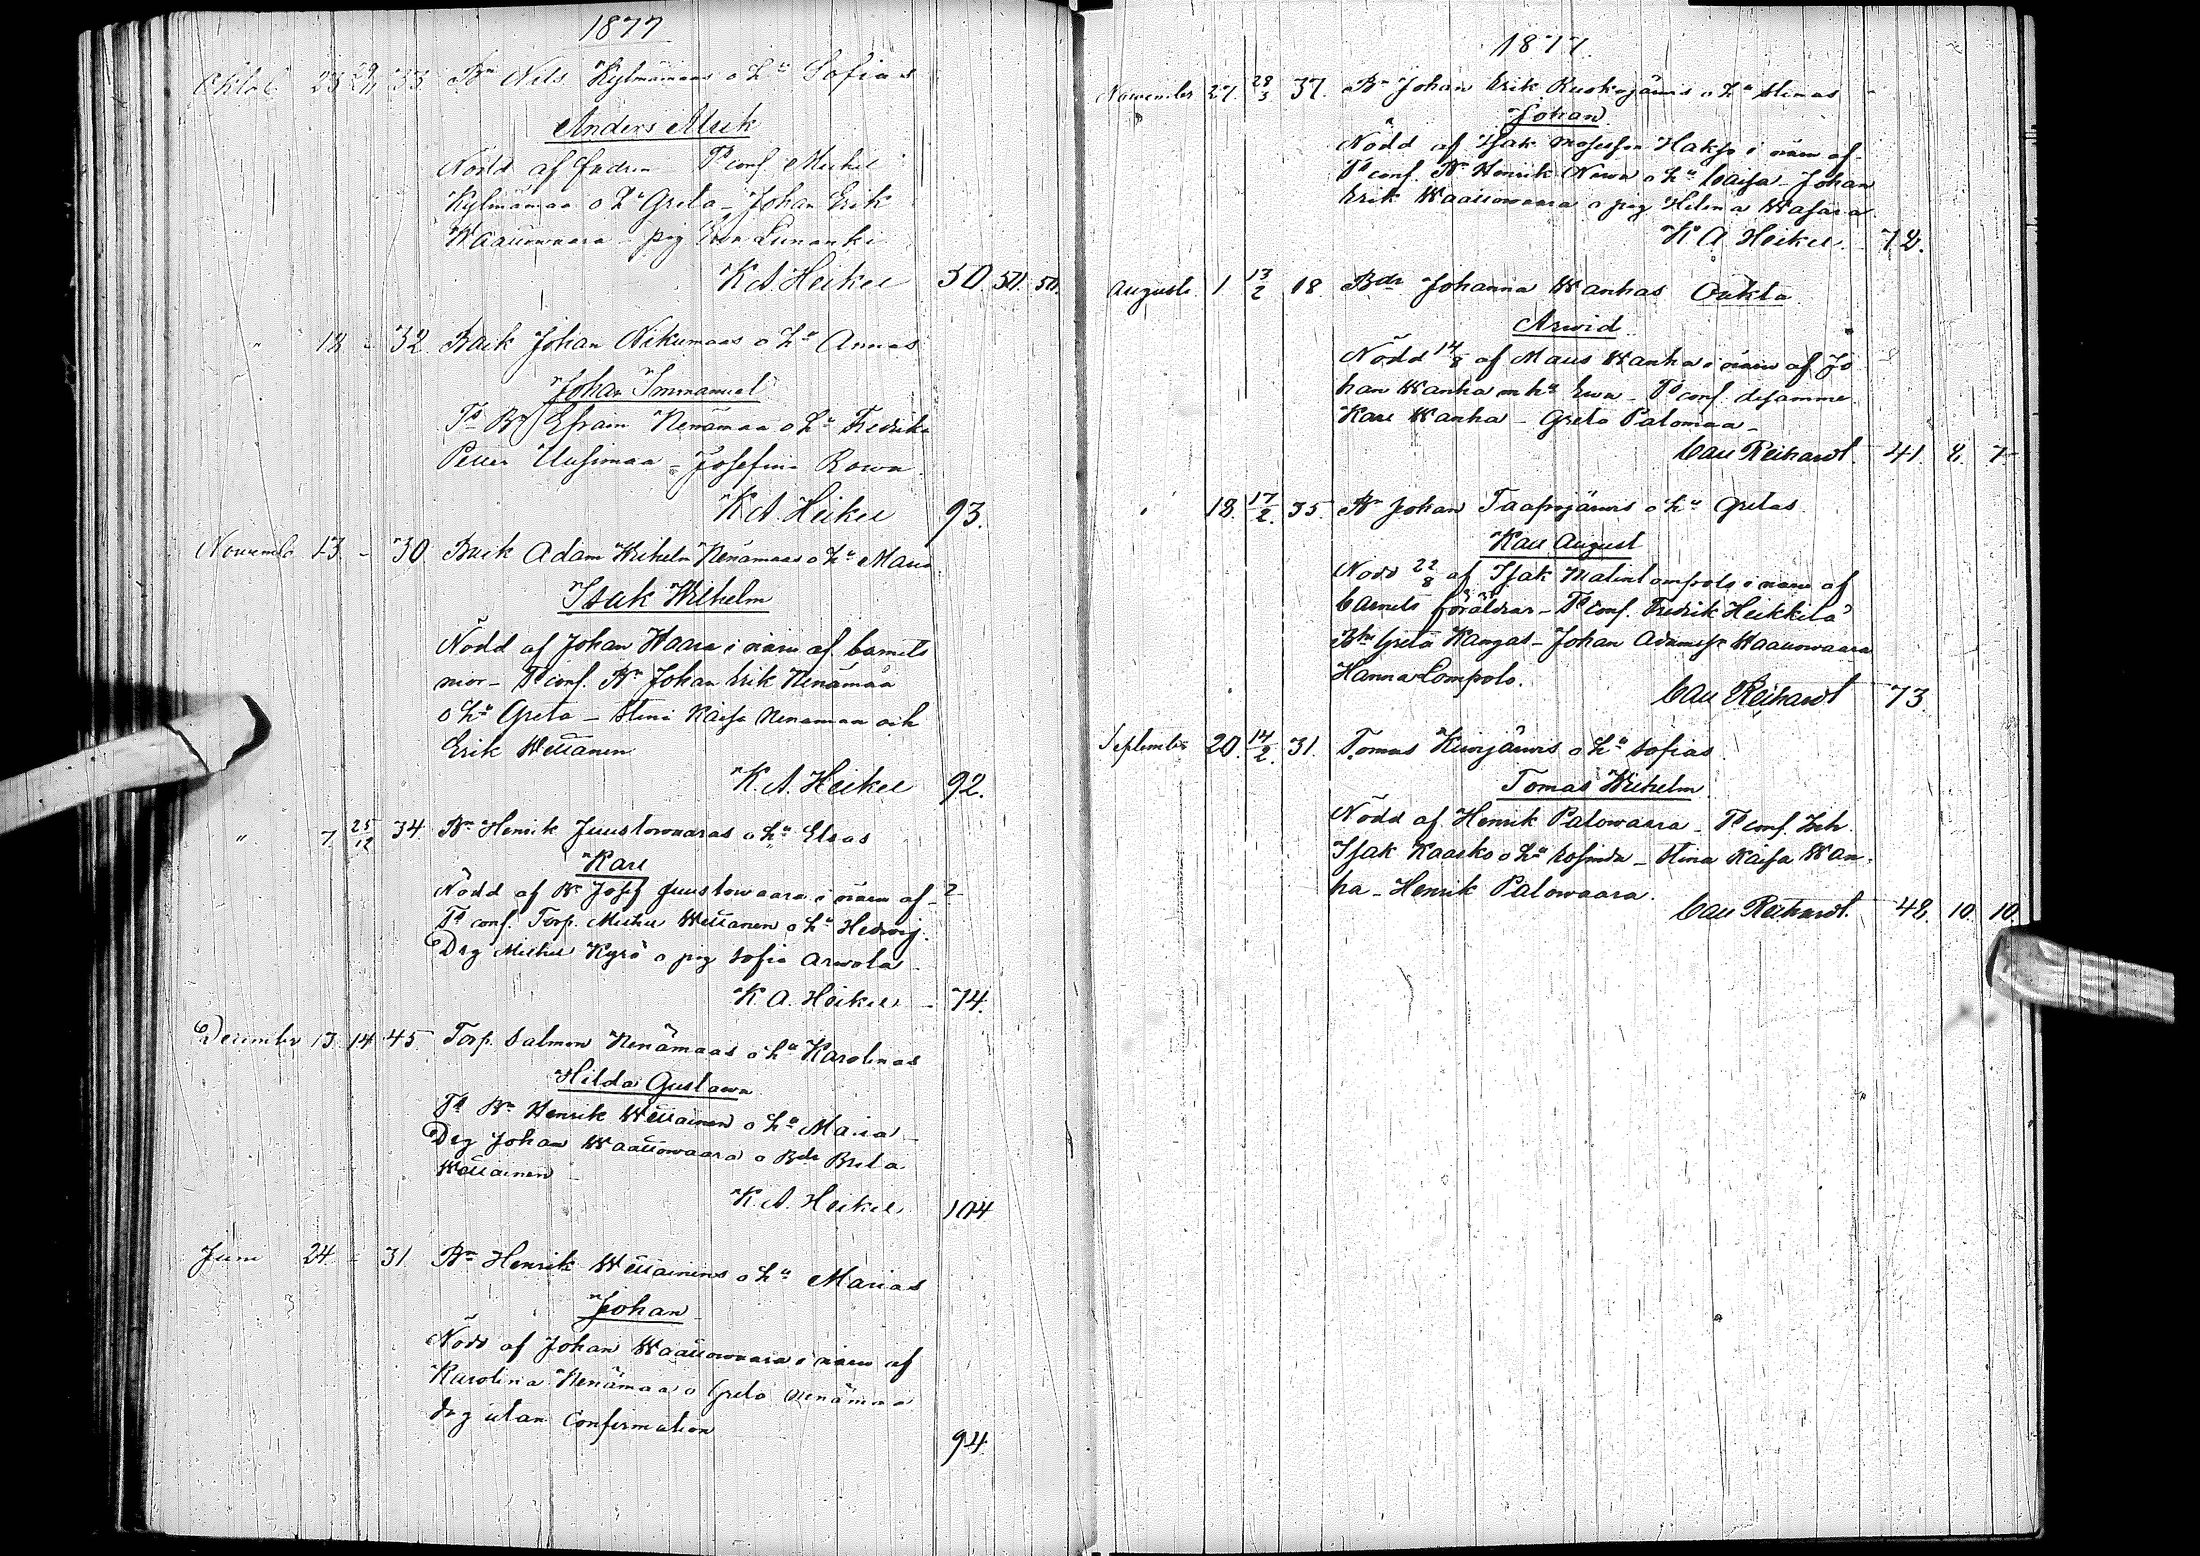 1877
Oktob 23 29/11 33. Bn Nils Kylmämaas o hu Sofias
Anders Alrik
Nödd af fadren – Ts conf. Mickel
Kylmämaa o hu Greta – Johan Erik
Waaliowaara – pig Ewa Lunanki
K. A. Heikel 50. 50. 50.
" 18 – 32. Back Johan Nikumaas o hu Annas
Johan Immanuel
Ts Bn Efraim Nenämaa o hu Fredrika
Petter Uusimaa – Josefina Rowa.
K. A. Heikel 93.
Novemb 13 – 30 Back Adam Wilhelm Nenämaas o hu Marias
Isak Wilhelm
Nödd af Johan Waara i närv af barnets
mor – Ts conf. Bn Johan Erik Nenämaa
o hu Greta – Stina Kaisa Nenämaa och
Erik Wettanen
K. A. Heikel 92.
" 7. 25/12 34. Bn Henrik Juustowaaras o hu Elsas
Karl
Nödd af Bn Josef Juustowaara i närv af –
Ts conf. Torp. Mickel Wettanen o hu Hedvig.
Drg Mickel Kyrö o pig Sofia Arwola –
K. A. Heikel – 74.
December 13. 14 45. Torp. Salmon Nenämaas o hu Karolinas
Hilda Gustawa
Ts Bn Henrik Wettainen o hu Maria –
Drg Johan Waaliowaara o Bdr Brita
Wettainen –
K. A. Heikel 104
Juni 24. – 31 Bn Henrik Wettainens o hu Marias
Johan
Nödd af Johan Waaliowaara i närv af
Karolina Nenämaa o Greta Nenämaa
dog utan Confirmation
94.
1877.
November 27. 28/3 37. Bn Johan Erik Ruokojärwis o hu Stinas
Johan
Nödd af Isak Mosesson Hakso i närv af –
Ts conf. Bn Henrik Nowa o hu Caisa – Johan
Erik Waaliowaara o pig Helena Wasara
K A Heikel 72.
Augusti 1 13/2 18. Bdr Johanna Wanhas Oäkta
Arwid
Nödd 14/8 af Maus Wanha i närv af Jo
han Wanha m hu Ewa – Ts conf. desamme.
Karl Wanha – Greta Palomaa –
Carl Reihardt. 41. 8. 7.
" 18. 17/2. 35. Bn Johan Taapojärwis o hu Gretas
Karl August
Nödd 22/8 af Isak Matint ompolo i närv af
barnets föräldrar – Ts conf. Fredrik Heikkilä
Greta Kangas – Johan Adamss Waaliowaara
Hanna Lompolo.
Carl Reihardt 73.
September 20. 14/2. 31. Tomas Kuerjärwis o hu Sofias
Tomas Wilhelm
Nödd af Henrik Palowaara – Ts conf.
Isak Kaarko o hu – Stina Kaisa Wan
ha – Henrik Palowaara.
Carl Reihardt. 48. 10. 10.